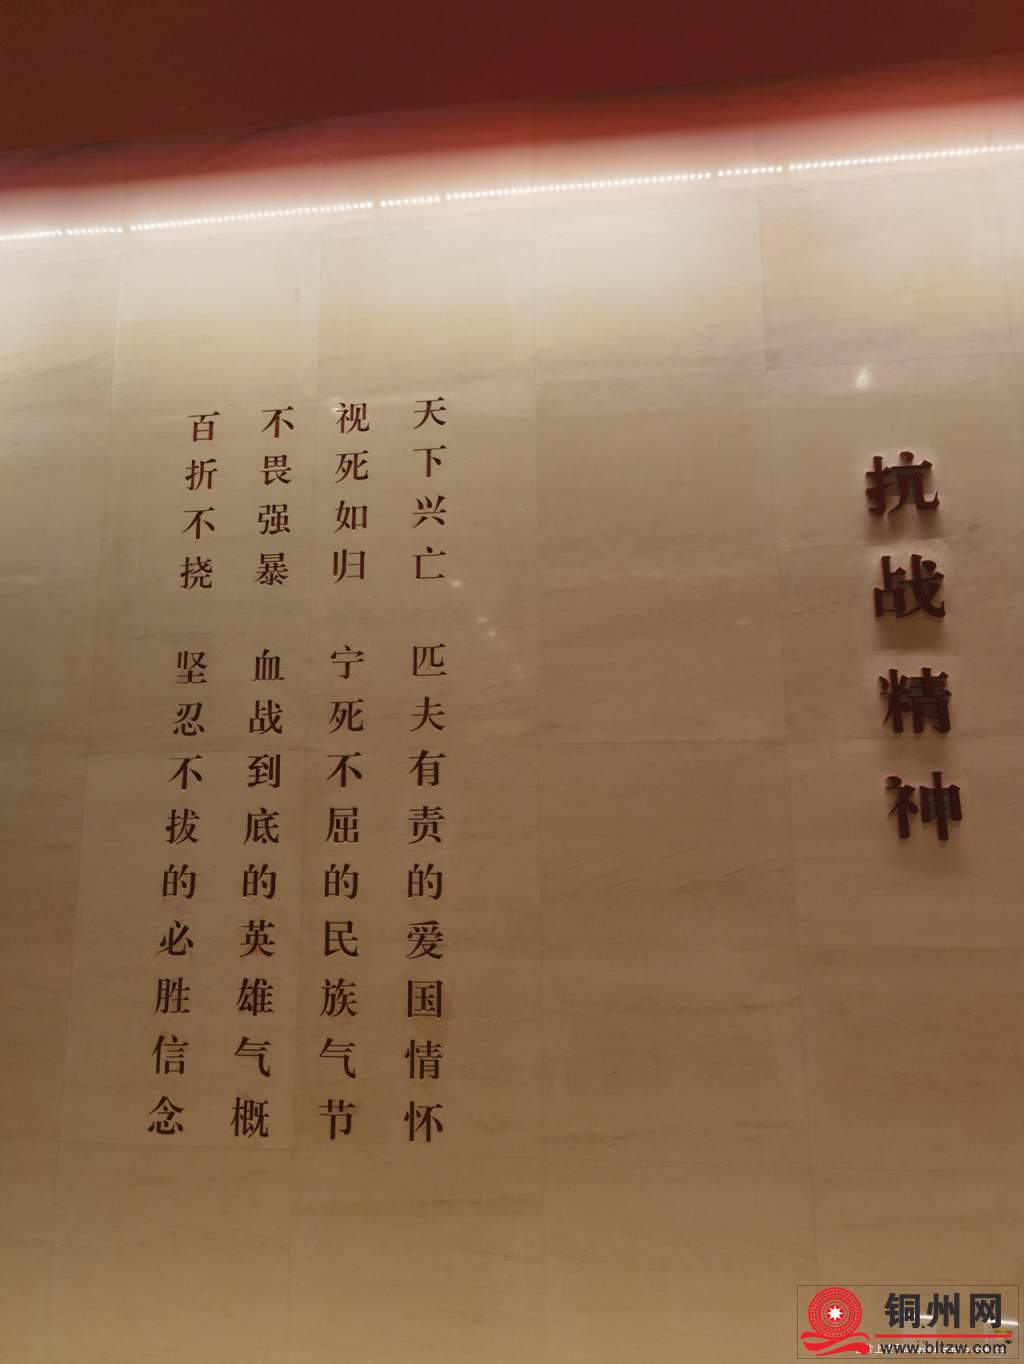 抗战精神
天下兴亡 匹夫有责的爱国情怀
视死如归 宁死不屈的民族气节
不畏强暴 血战到底的英雄气概
百折不挠 坚忍不拔的必胜信念
铜州网
www.bltzw.com